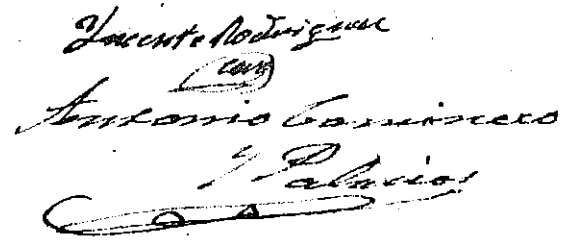 Vicente Rodriguez
Antonio Camionero
y Palacios